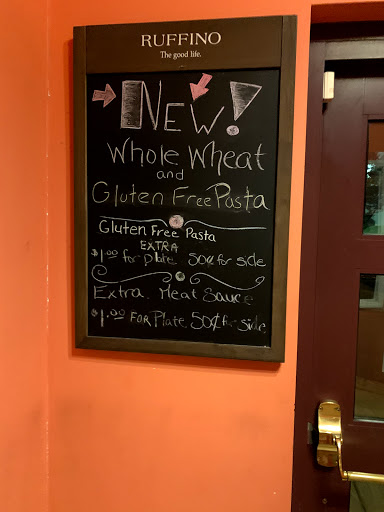 RUFFINO
The good life.
New!
Whole Wheat
and
Gluten Free Pasta
Gluten Free Pasta
EXTRA
$1.00 for plate 50¢ for side
Extra Meat Sauce
$1.00 FOR Plate 50¢ for side